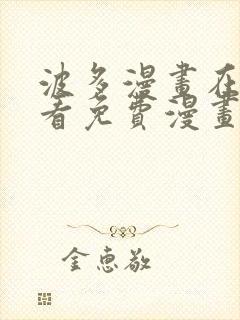 波多漫畫在
看免費漫畫
金惠敬